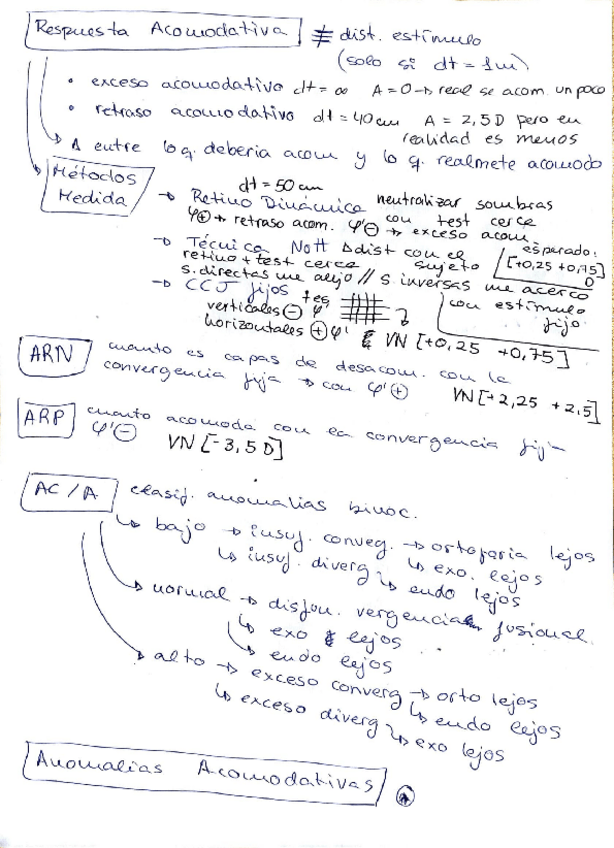 Respuesta Acomodativa ≠ dist. estímulo
(solo si dt = 1m)
• exceso acomodativo dt = ∞ A = 0 → real se acom. un poco
• retraso acomodativo dt = 40 cm A = 2,5 D pero en
realidad es menos
→ Δ entre lo q. deberia acom y lo q. realmete acomodo
Métodos
Medida
dt = 50 cm
→ Retino Dinámica neutralizar sombras
con test cerca
φ'⊕ → retraso acom. φ'⊖ → exceso acom.
→ Técnica Nott Δdist con el
retino + test cerca sujeto
esperado:
[+0,25 +0,75]
s. directas me alejo // s. inversas me acerco
→ CCJ fijos
con estímulo
fijo.
verticales ⊖ φ'
horizontales ⊕ φ'
VN [+0,25 +0,75]
ARN cuanto es capas de desacom. con la
convergencia fija → con φ'⊕ VN [+2,25 +2,5]
ARP cuanto acomoda con la convergencia fija
φ'⊖ VN [-3,5 D]
AC/A clasif. anomalias binoc.
↳ bajo → insuf. conveg. → ortoforia lejos
↳ exo. lejos
↳ insuf. diverg ↳ endo lejos
→ normal → disfun. vergencia fusional.
↳ exo lejos
↳ endo lejos
→ alto → exceso converg → orto lejos
↳ endo lejos
↳ exceso diverg ↳ exo lejos
Anomalias Acomodativas